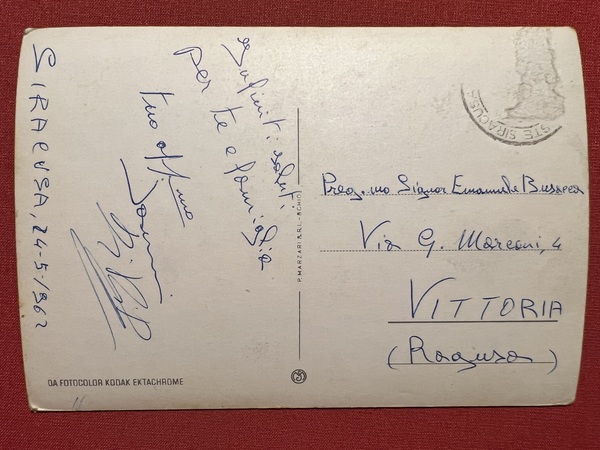 SIRACUSA, 24-5-1962
Infiniti saluti
per te e famiglia
tuo aff.mo
P. MARZARI S.R.L. - SCHIO
STE SIRACUS
Preg.mo Signor Emanuele Busacca
Via G. Marconi, 4
VITTORIA
(Ragusa)
DA FOTOCOLOR KODAK EKTACHROME